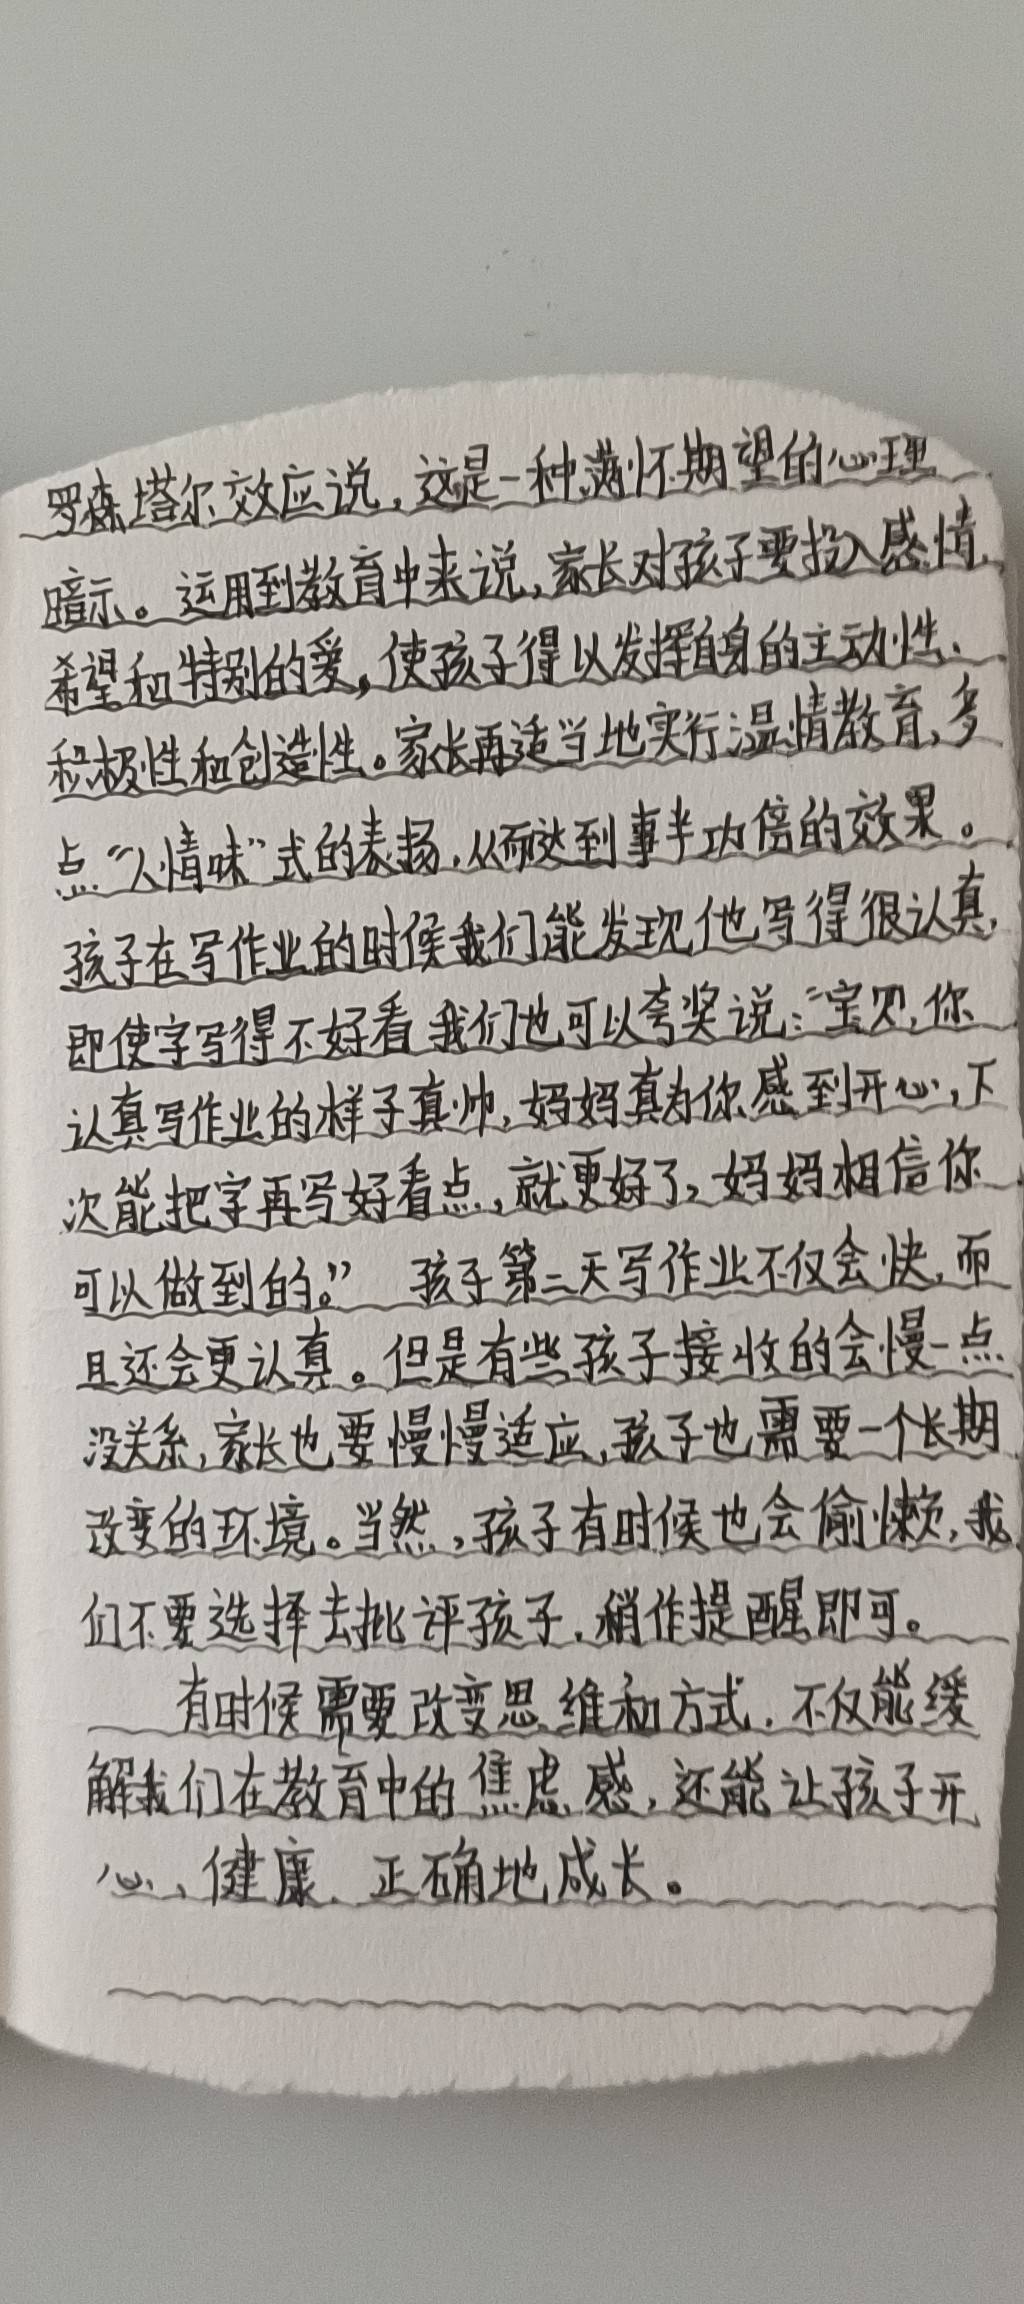 罗森塔尔效应说，这是一种满怀期望的心理
暗示。运用到教育中来说，家长对孩子要投入感情、
希望和特别的爱，使孩子得以发挥自身的主动性、
积极性和创造性。家长再适当地实行温情教育，多
点“人情味”式的表扬，从而达到事半功倍的效果。
孩子在写作业的时候我们能发现他写得很认真，
即使字写得不好看我们也可以夸奖说：“宝贝，你
认真写作业的样子真帅，妈妈真为你感到开心，下
次能把字再写好看点，就更好了，妈妈相信你
可以做到的。” 孩子第二天写作业不仅会快，而
且还会更认真。但是有些孩子接收的会慢一点
没关系，家长也要慢慢适应，孩子也需要一个长期
改变的环境。当然，孩子有时候也会偷懒，我
们不要选择去批评孩子，稍作提醒即可。
有时候需要改变思维和方式，不仅能缓
解我们在教育中的焦虑感，还能让孩子开
心、健康、正确地成长。